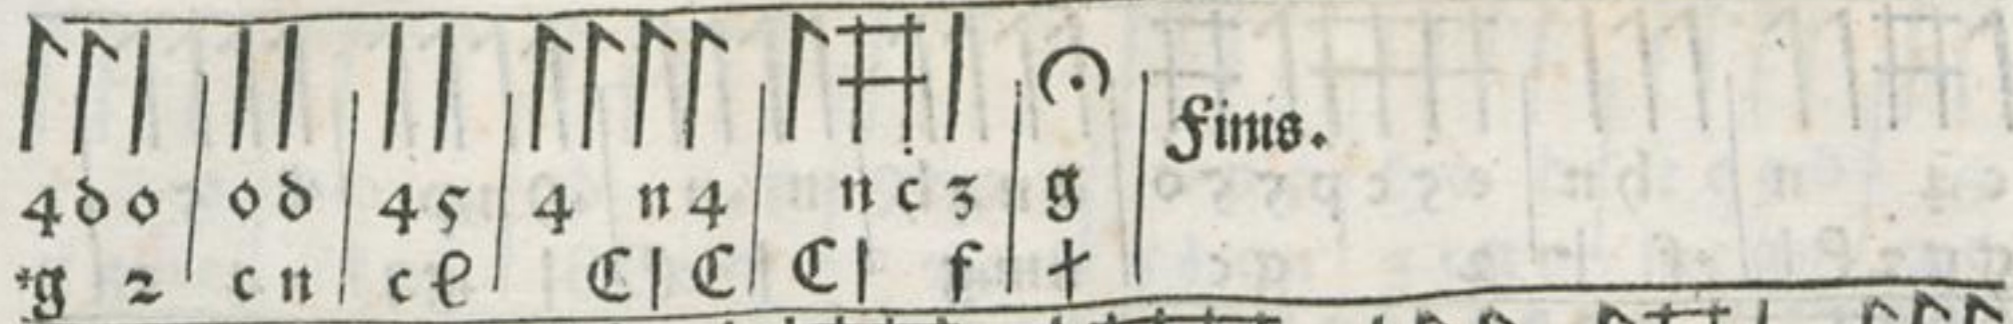 4 d o | o d | 4 5 | 4 n 4 | n c 3 | g | Finis.
*g 2 | c n | c e | C | C | C | f | ꝉ |